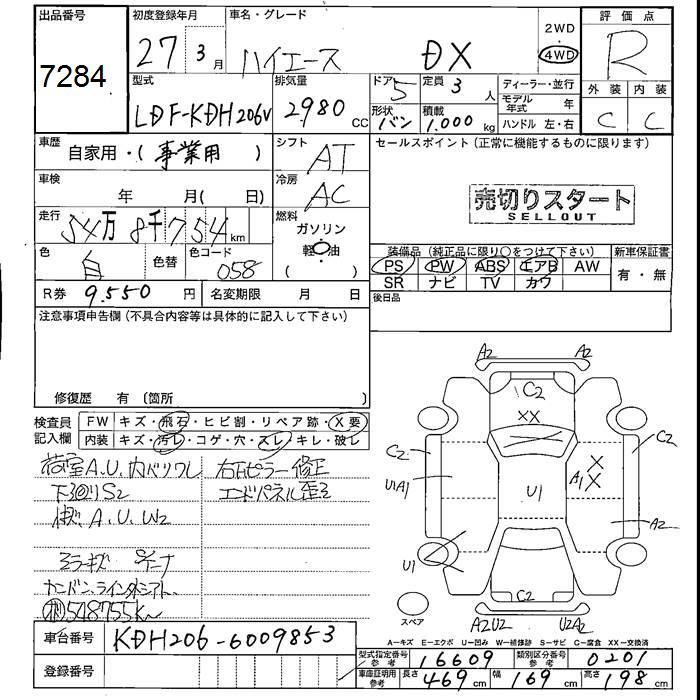 出品番号
7284
初度登録年月
27 3 月
車名・グレード
ハイエース DX
2WD
・
4WD
評価点
R
型式
LDF-KDH206V
排気量
2980 cc
ドア
5
形状
バン
定員 3 人
積載
1,000 kg
ディーラー・並行
モデル年式 年
ハンドル 左・右
外装 内装
C C
車歴
自家用・( 事業用 )
シフト
AT
セールスポイント(正常に機能するものに限ります)
車検
年 月( 日)
冷房
AC
売切りスタート
SELLOUT
走行
54万 8千 754 km
燃料
ガソリン
軽・油
( )
色
白
色替
色コード
058
装備品(純正品に限り○をつけて下さい)
新車保証書
PS PW ABS エアB AW
SR ナビ TV カワ
有・無
R券 9,550 円
名変期限 月 日
後日品
注意事項申告欄(不具合内容等は具体的に記入して下さい)
修復歴 有(箇所 )
検査員記入欄
FW キズ・飛石・ヒビ割・リペア跡・X要
内装 キズ・汚レ・コゲ・穴・スレ・キレ・破レ
荷室A.U.内バリワレ
下回りS2
A.U.W2
ミラーキズ
548755K
右Fピラー修正
エンドパネル歪ミ
A2 A2
C2
XX
C2 C2
U1A1
U1
A1 X X
A2
U1
C2
A2U2 U2A2
スペア
A-キズ E-エクボ U-凹み W-補修跡 S-サビ C-腐食 XX-交換済
車台番号 KDH206-6009853
登録番号
型式指定番号 参考 16609
類別区分番号 参考 0201
車庫証明用 参考 長さ 469 cm 幅 169 cm 高さ 198 cm